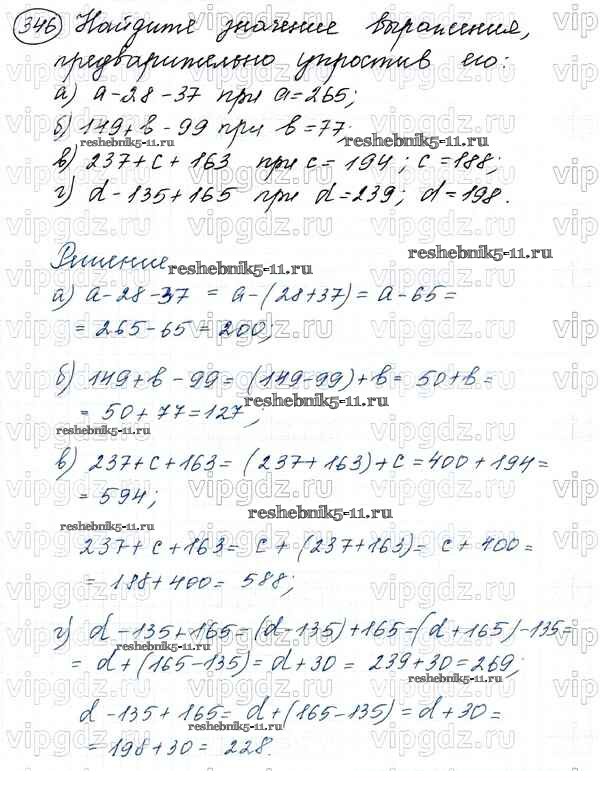 346 Найдите значение выражения,
предварительно упростив его:
а) a-28-37 при a=265;
б) 149+b-99 при b=77;
в) 237+c+163 при c=194; c=188;
г) d-135+165 при d=239; d=198.
Решение
а) a-28-37 = a-(28+37) = a-65 =
= 265-65 = 200;
б) 149+b-99 = (149-99)+b = 50+b =
= 50+77=127;
в) 237+c+163= (237+163)+c=400+194=
= 594;
237+c+163= c+(237+163)= c+400=
= 188+400= 588;
г) d-135+165=(d-135)+165=(d+165)-135=
= d+(165-135)= d+30 = 239+30=269;
d-135+165= d+(165-135)=d+30=
=198+30= 228.
vipgdz.ru
reshebnik5-11.ru